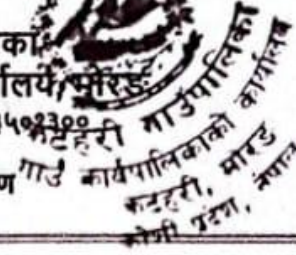 का
र्यालय, मोरङ
कटहरी गाउँपालिका
गाउँ कार्यपालिकाको कार्यालय
कटहरी, मोरङ
कोशी प्रदेश, नेपाल
ण